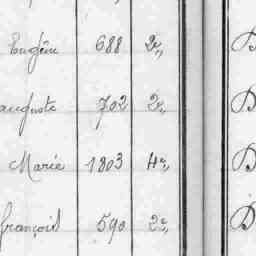 Eugène 688 2e, D
auguste 702 2e, D
Marie 1803 4e, D
françois 590 2e, D